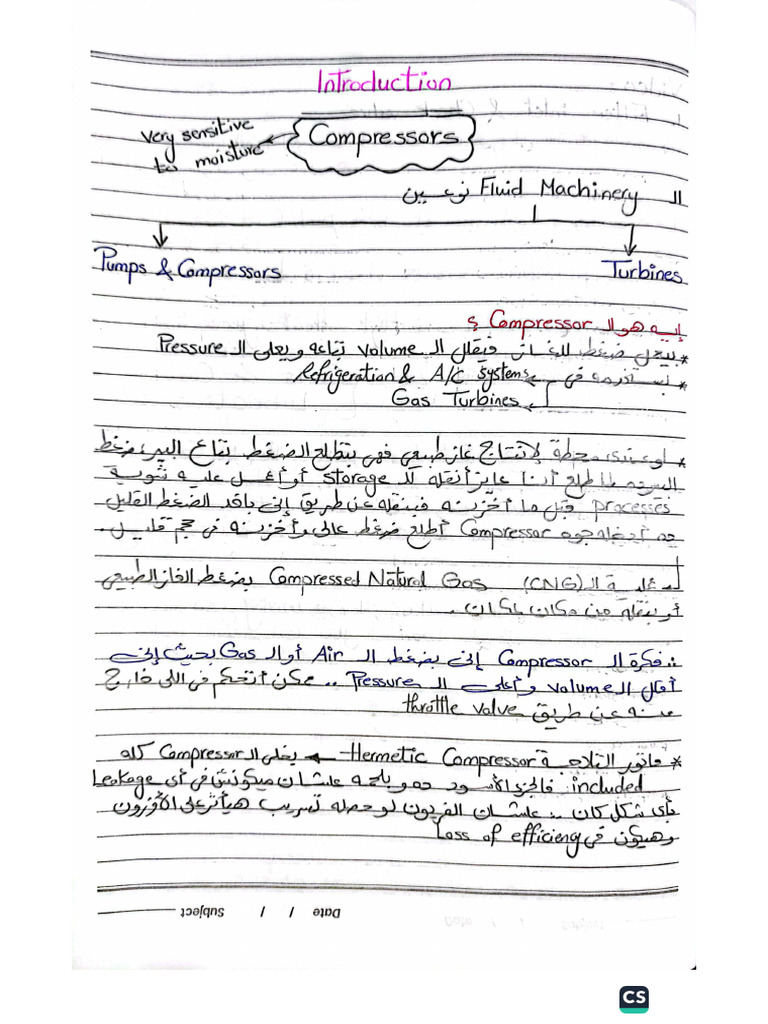 Introduction
Compressors
very sensitive
to moisture
الـ Fluid Machinery نوعين
Pumps & Compressors
Turbines
إيه هو الـ Compressor ؟
* بيعمل ضغط للغاز فيقلل الـ volume بتاعه ويعلى الـ Pressure
* بستخدمه في Refrigeration & A/C systems
Gas Turbines
* لو عندى محطة لإنتاج غاز طبيعي فهى بتطلع الضغط بتاع البير، ضغط
البير ده لما طلع أنا عايز أنقله لـ storage أو أعمل عليه شوية
processes قبل ما أخزنه فبنقله عن طريق إنى باخد الضغط القليل
ده أدخله جوه Compressor أطلع ضغط عالى وأخزنه في حجم قليل.
عملية الـ (CNG) Compressed Natural Gas بضغط الغاز الطبيعي
أو بنقله من مكان لمكان.
∴ فكرة الـ Compressor إنى بضغط الـ Air أو الـ Gas بحيث إنى
أقلل الـ volume وأعلى الـ Pressure .. ممكن أتحكم في اللى خارج
منه عن طريق throttle valve
* ماتور التلاجة Hermetic Compressor ← يخلى الـ Compressor كله
included فالجزء الأسود ده ويلحمه علشان ميكونش في أى Leakage
بأى شكل كان .. علشان الفريون لو حصله تسريب هيأثر على الأوزون
وهيكون في Loss of efficieng
Date / / Subject
CS